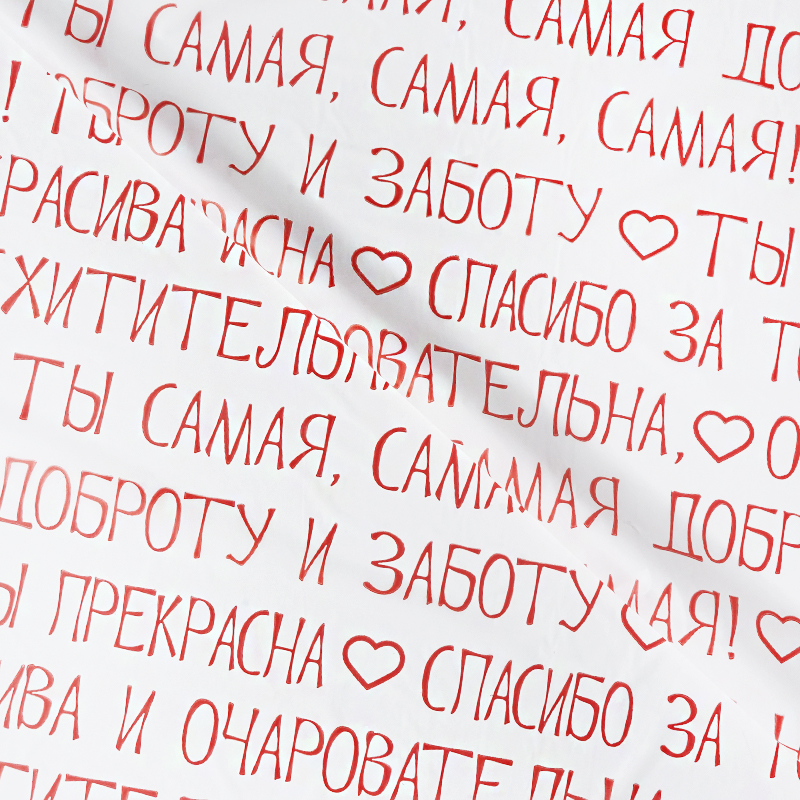 САМАЯ ДО
ТЫ САМАЯ, САМАЯ, САМАЯ!
! ДОБРОТУ И ЗАБОТУ ♡ ТЫ
КРАСИВА КРАСНА ♡ СПАСИБО ЗА
ХИТИТЕЛЬ ОВАТЕЛЬНА, ♡ О
ТЫ САМАЯ, САМ МАЯ ДОБР
ДОБРОТУ И ЗАБОТУ АЯ! ♡
Ы ПРЕКРАСНА ♡ СПАСИБО ЗА
ИВА И ОЧАРОВАТЕЛЬНА
ХИТИТЕ